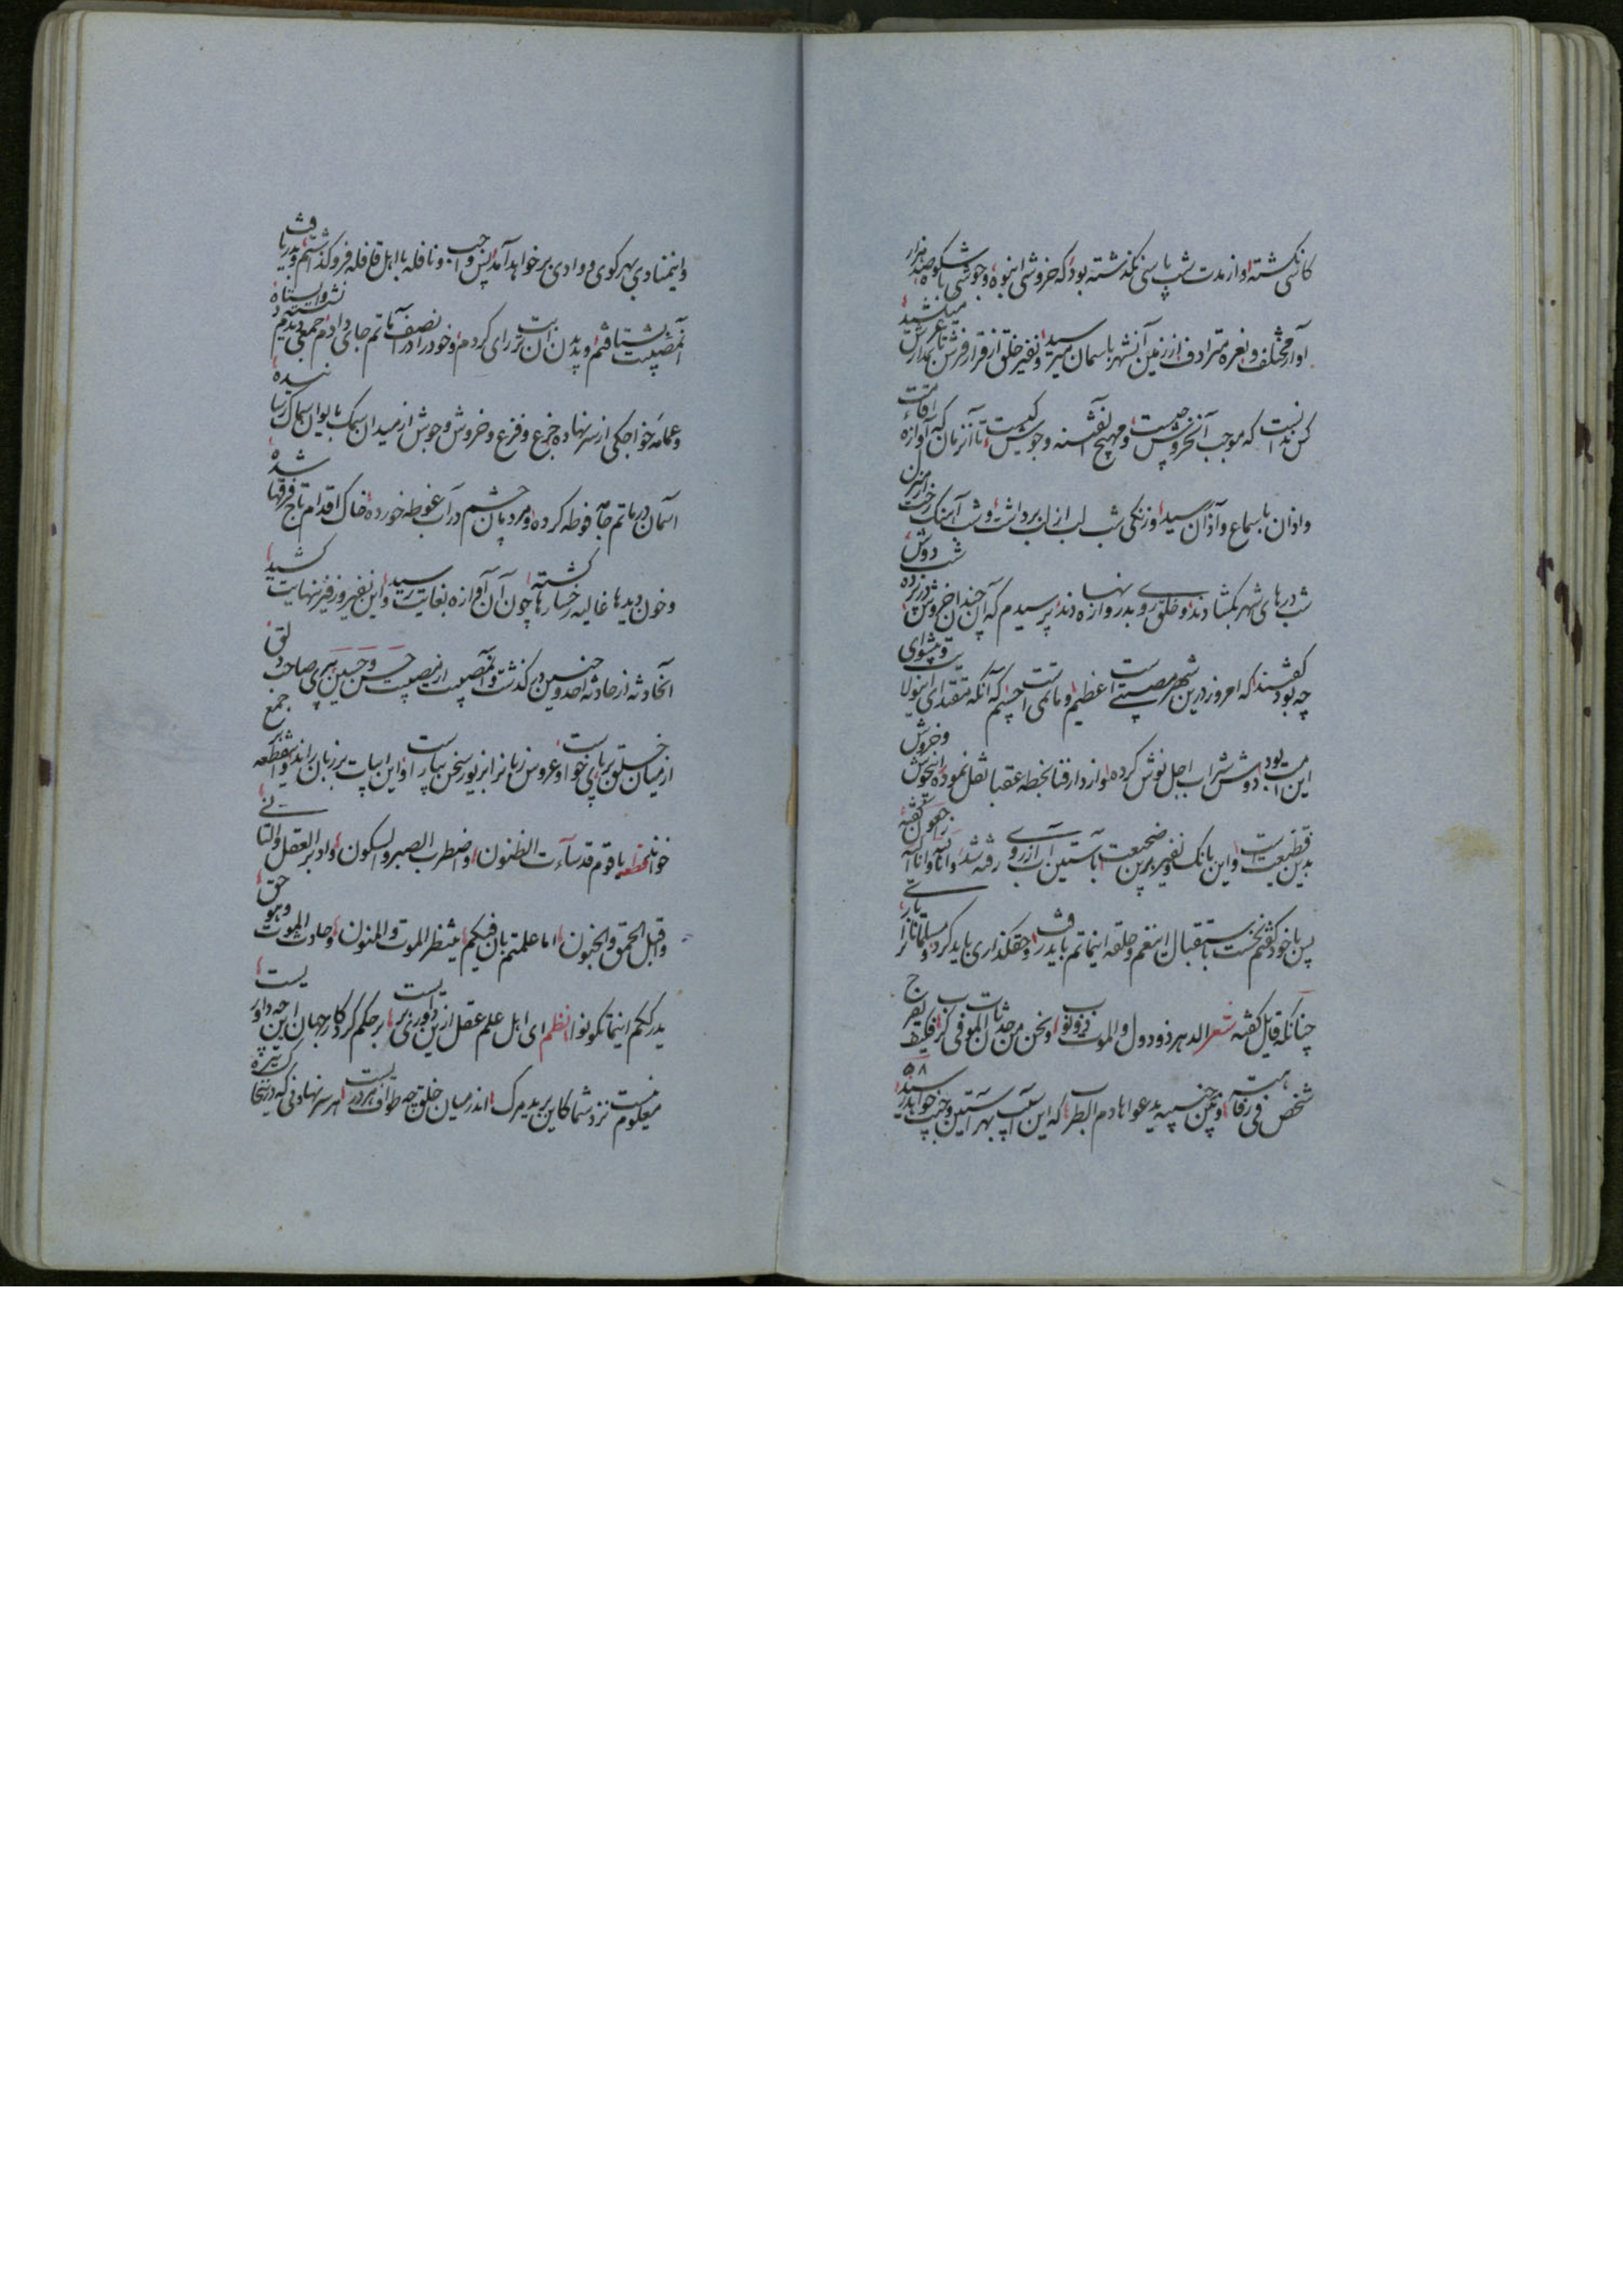 کانکی نکشته و از مدت شب پاسی نکذشته بود که خروشی انبوه و جوشی باشکوه صد هزار
آواز مختلف و نعره مترادف از زمین آنشهر باسمان میرسید و نفیر خلق از قرار فرش تا بمدار عرش میکشید
کس ندانست که موجب آنخروش چیست و مهیج آنفتنه و جوش کیست تا آنزمان که آوازه اقامت
و اذان باسماع و آذان رسید و زنکی شب لب از لب برداشت و شب آهنک رخت از منزل
شب درهای شهر بکشادند و خلق روی بدروازه نهادند پرسیدم که آن چندان خروش دوش شب
چه بود کفتند که امروز درین شهر مصیبتی است عظیم و ماتمی است جسیم که آنکه مقتدای اینولا و پیشوای
این امت بود دوش شراب اجل نوش کرده و از دار فنا بخطه عقبا نقل نموده اینجوش و خروش
بدین فظیعت است و این بانک و نفیر برین ضجیعت با آستین آب از روی رفته شد و انا لله و انا الیه راجعون کفته
پس با خود کفتم نخست باستقبال اینغم و حلقه اینماتم باید رفت و حقکذاری باید کرد و مسلمانانرا یاری
چنانکه قایل کفته شعر الدهر ذو دول و الموت ذو نوب و نحن من حدثان الموت فی کرب فکیف یفرح
شخص فی رفاهته و بین جنبیه یدعوا هادم الطرب که این آسیب بهر آستین و جیب خواهد رسید
و اینمنادی بهر کوی و وادی بر خواهد آمد پس واجب و نافله با اهل قافله فرو کذاشتم و بدریافت
آنمصیبت بشتافتم و بدیدن آن رای کردم و خود را در آنصف ماتم جای دادم جمعی دیدم نشسته و ایستاده
و عمامه خواجکی از سر نهاده جزع و فزع و خروش و جوش از میدان سمک بایوان سماک رسانیده
آسمان در ماتم جامه فوطه کرده و مردمان چشم در آب غوطه خورده خاک اقدام تاج فرقها شده
و خون دیدها غالیه رخسارها کشته چون آن آوازه بغایت رسید و این نفیر و زفیر بنهایت کشید
آنحادثه از حادثه احد و حنین در کذشت و آنمصیبت از مصیبت حسن و حسین پیری صاحب دلق
از میان خلق بر پای خواست و عروس زبانرا بزیور سخن بیاراست و این ابیات بر زبان راند و آنقطعه بر جمع
خواند قطعه یا قوم قد سآءت الظنون و اضطرب الصبر و السکون و ادبر العقل و التانی
و اقبل الحمق و الجنون اما علمتم بان فیکم منتظر الموت و المنون و حادث الموت و هو حق
یدرککم اینما تکونوا نظم ای اهل علم و عقل ازین داوری بریست بر حکم کردکار جهان این چه داوریست
معلوم نیست نزد شما کاین برید مرک اندر میان خلق چه طواف هر دریست هر سر نهادنی که درینجا